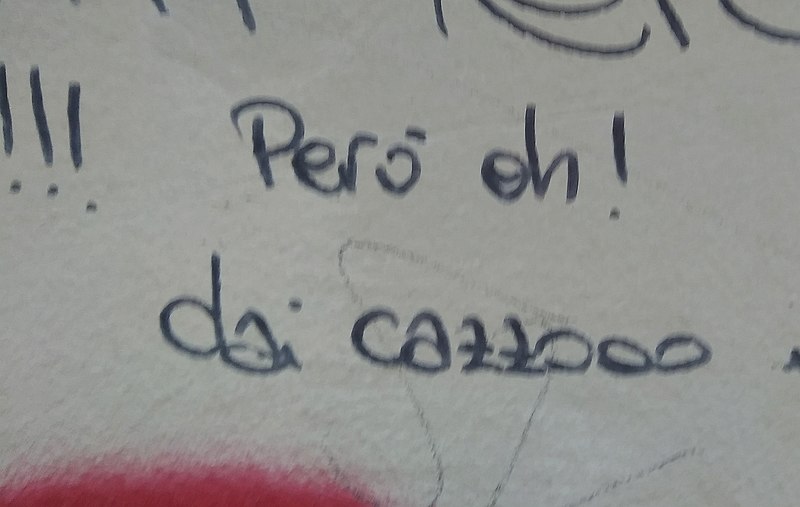 !!! Però oh!
dai cazzooo